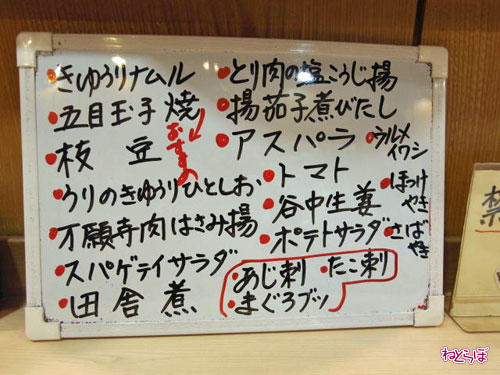 きゅうりナムル
五目玉子焼
おすすめ
枝豆
うりのきゅうりひとしお
万願寺肉はさみ揚
スパゲティサラダ
田舎煮
とり肉の塩こうじ揚
揚茄子煮びたし
アスパラ
ウルメイワシ
トマト
谷中生姜
ほっけやき
ポテトサラダ
さばやき
あじ刺
たこ刺
まぐろブツ
禁
ねとらぼ